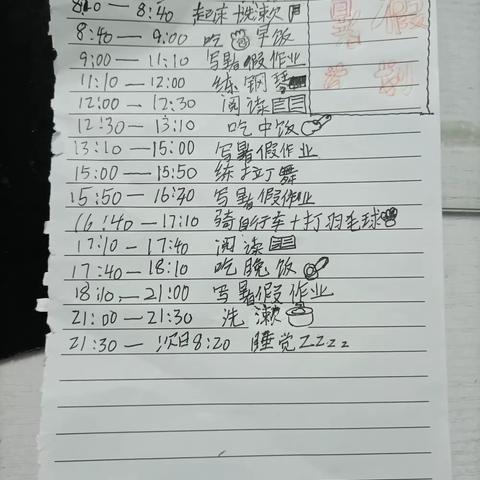 8:10 — 8:40 起床洗漱
8:40 — 9:00 吃早饭
9:00 — 11:10 写暑假作业
11:10 — 12:00 练钢琴
12:00 — 12:30 阅读
12:30 — 13:10 吃中饭
13:10 — 15:00 写暑假作业
15:00 — 15:50 练拉丁舞
15:50 — 16:40 写暑假作业
16:40 — 17:10 骑自行车+打羽毛球
17:10 — 17:40 阅读
17:40 — 18:10 吃晚饭
18:10 — 21:00 写暑假作业
21:00 — 21:30 洗漱
21:30 — 次日8:20 睡觉ZZZZ
暑假
计划